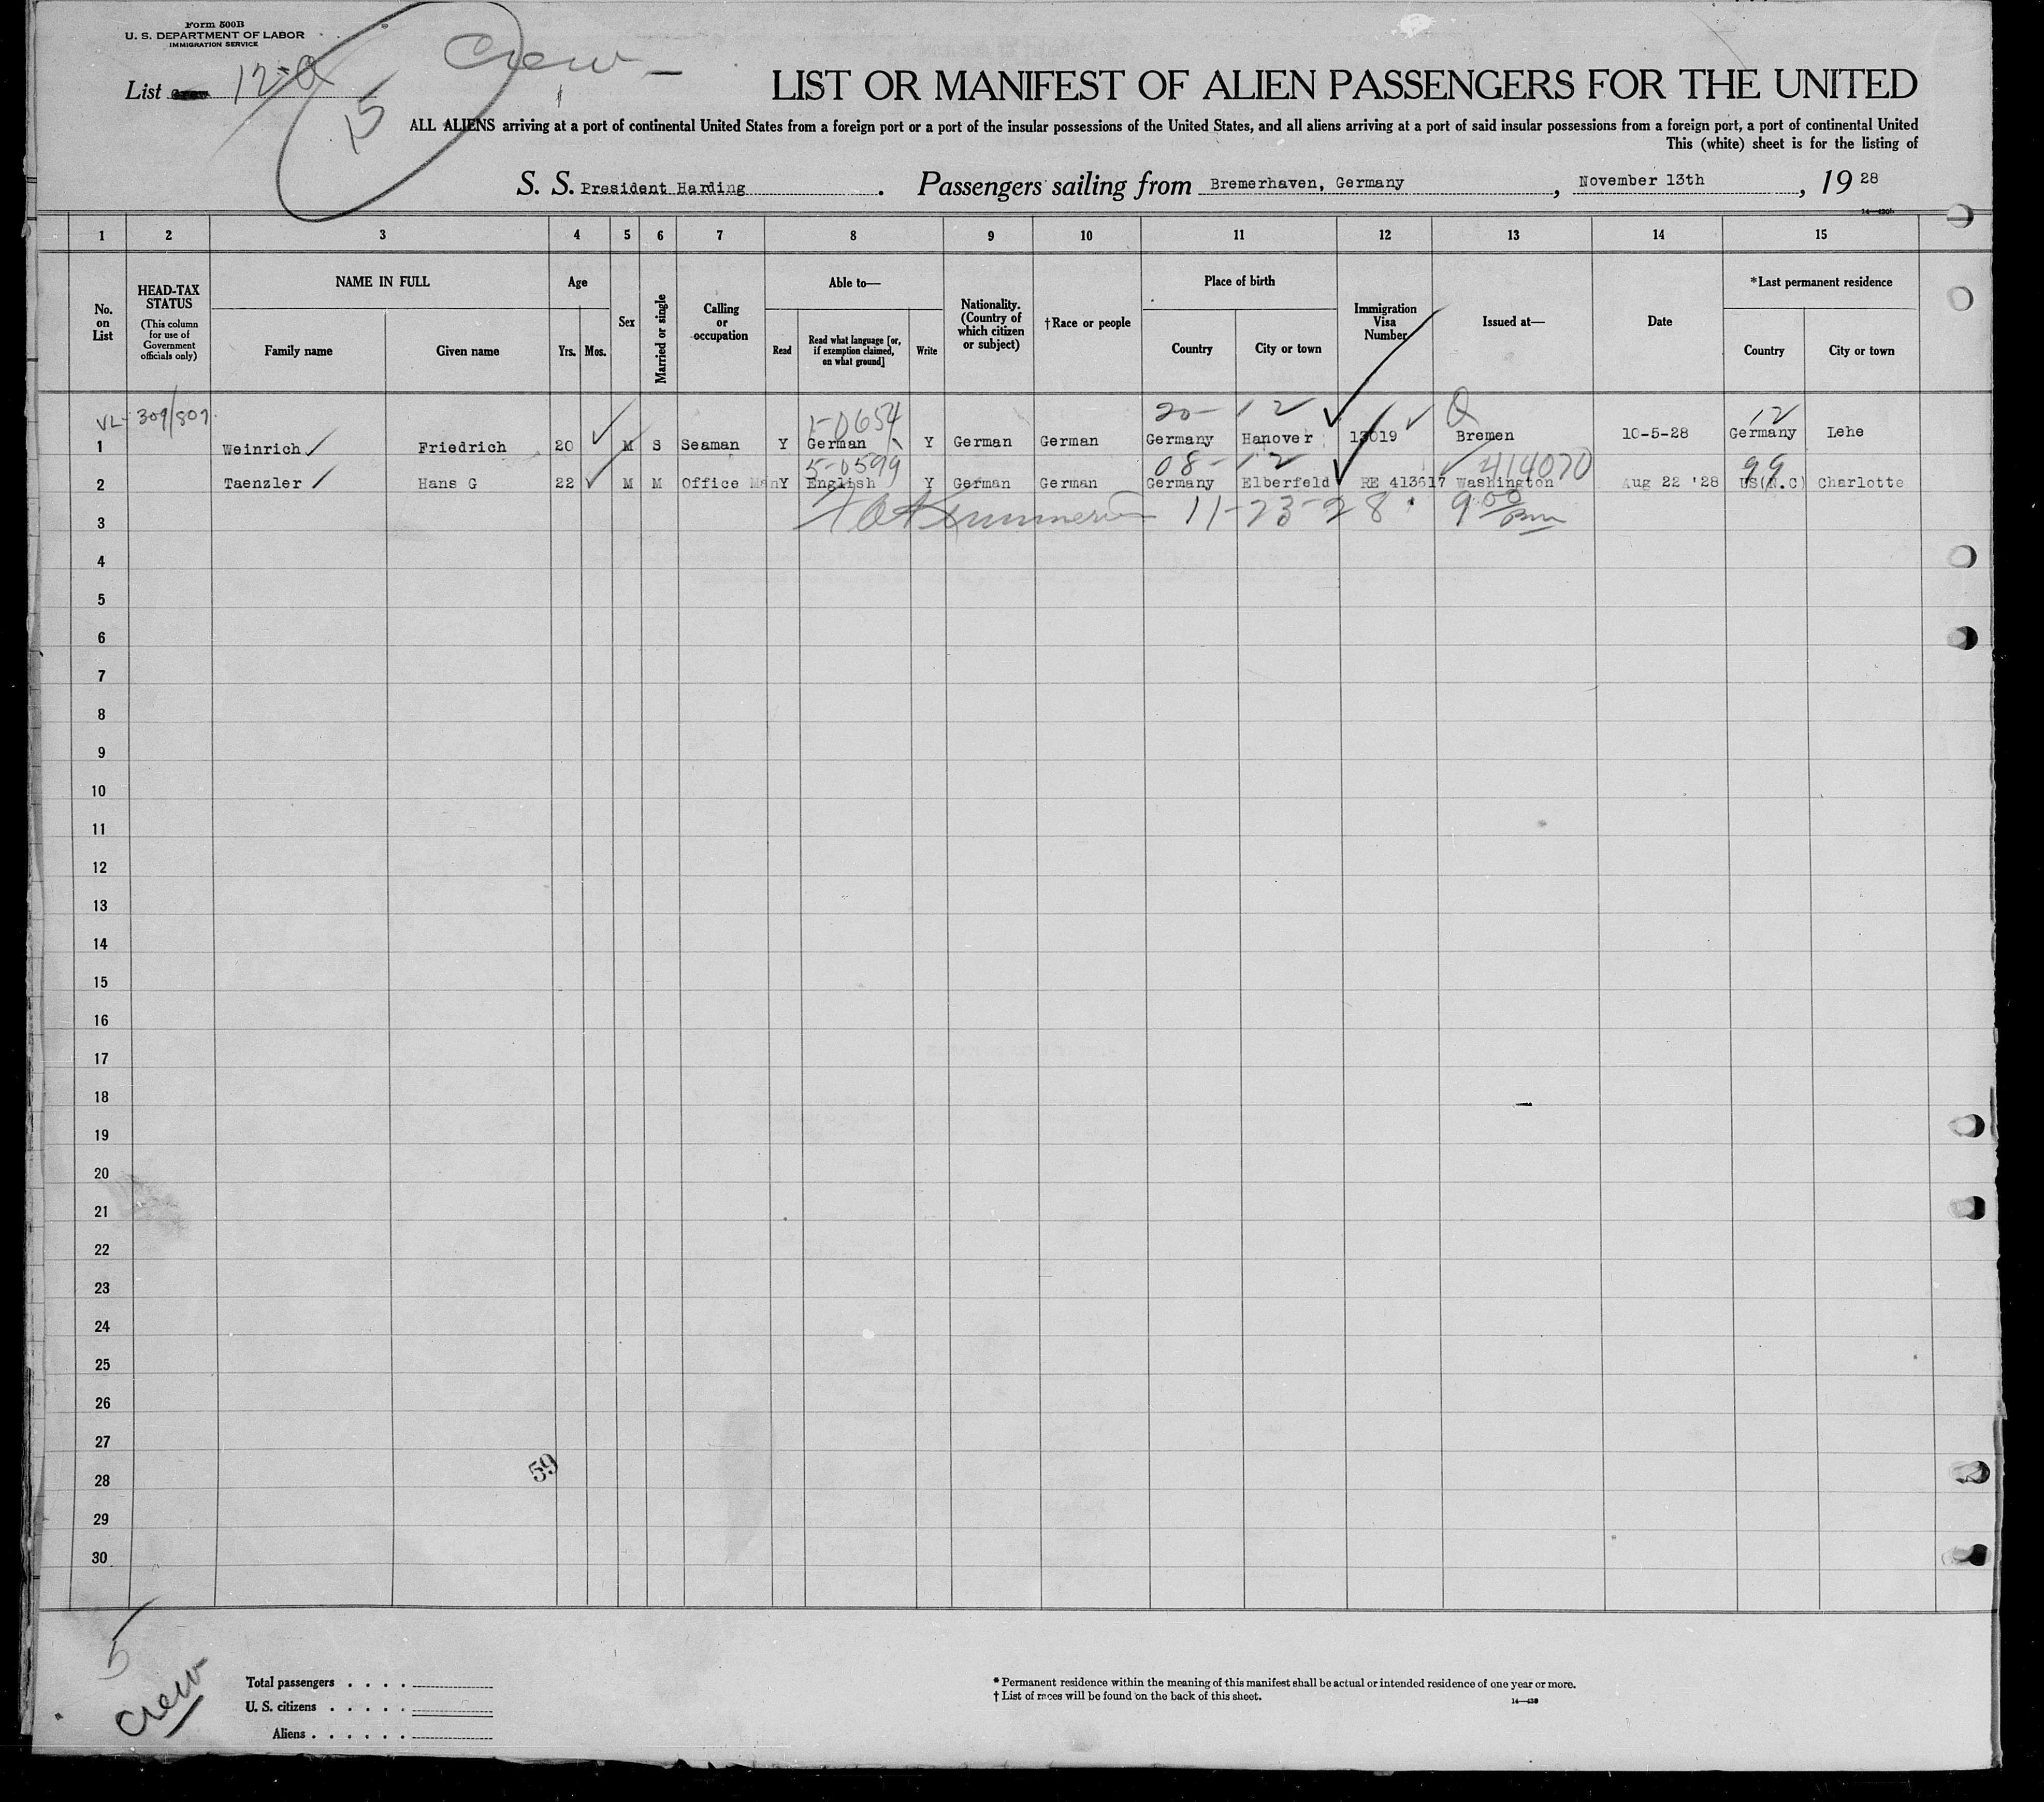 Form 500B
U. S. DEPARTMENT OF LABOR
IMMIGRATION SERVICE
Crew —
List 12-a
15
LIST OR MANIFEST OF ALIEN PASSENGERS FOR THE UNITED
ALL ALIENS arriving at a port of continental United States from a foreign port or a port of the insular possessions of the United States, and all aliens arriving at a port of said insular possessions from a foreign port, a port of continental United
This (white) sheet is for the listing of
S. S. President Harding . Passengers sailing from Bremerhaven, Germany , November 13th , 19 28
1 2 3 4 5 6 7 8 9 10 11 12 13 14 15
No. on List
HEAD-TAX STATUS
(This column for use of Government officials only)
NAME IN FULL
Family name
Given name
Age
Yrs.
Mos.
Sex
Married or single
Calling or occupation
Able to—
Read
Read what language [or, if exemption claimed, on what ground]
Write
Nationality. (Country of which citizen or subject)
†Race or people
Place of birth
Country
City or town
Immigration Visa Number
Issued at—
Date
*Last permanent residence
Country
City or town
VL- 309/807. 20- 12 Q 12
1 Weinrich Friedrich 20 M S Seaman Y German Y German German Germany Hanover 13019 Bremen 10-5-28 Germany Lehe
5-0599 08-12 414070 99
2 Taenzler Hans G 22 M M Office Man Y English Y German German Germany Elberfeld RE 413617 Washington Aug 22 '28 US(N.C) Charlotte
11-23-28 9 00 pm
3
4
5
6
7
8
9
10
11
12
13
14
15
16
17
18
19
20
21
22
23
24
25
26
27
59
28
29
30
5
Crew
Total passengers . . . .
U. S. citizens . . . . .
Aliens . . . . . .
* Permanent residence within the meaning of this manifest shall be actual or intended residence of one year or more.
† List of races will be found on the back of this sheet.